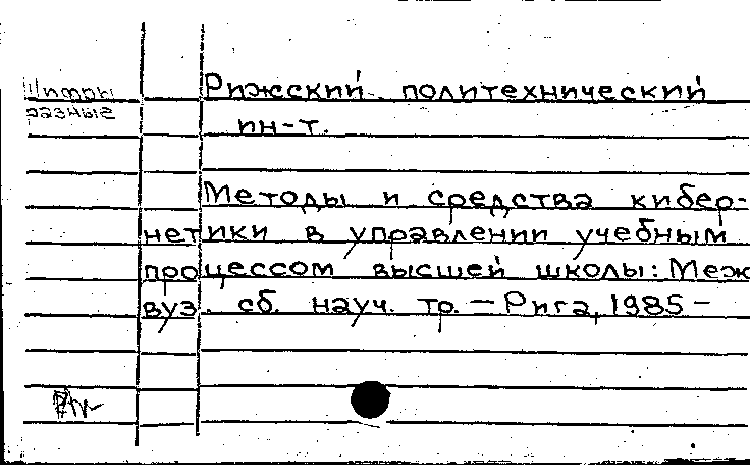 Шифры
разные
Рижский политехнический
ин-т.
Методы и средства кибер-
нетики в управлении учебным
процессом высшей школы: Меж
вуз. сб. науч. тр. — Рига, 1985 —